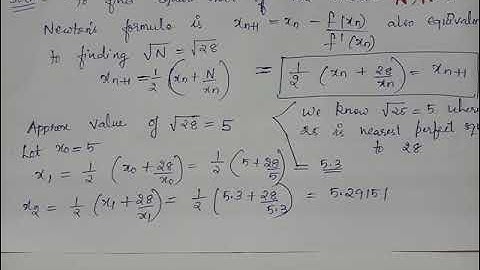 to find square root of
Newton's formula is xn+1 = xn - f(xn)/f'(xn) also equivalent
to finding √N = √28
xn+1 = 1/2 (xn + N/xn) = 1/2 (xn + 28/xn) = xn+1
Approx value of √28 = 5
we know √25 = 5 where
25 is nearest perfect
to 28
Let x0 = 5
x1 = 1/2 (x0 + 28/x0) = 1/2 (5 + 28/5) = 5.3
x2 = 1/2 (x1 + 28/x1) = 1/2 (5.3 + 28/5.3) = 5.29151